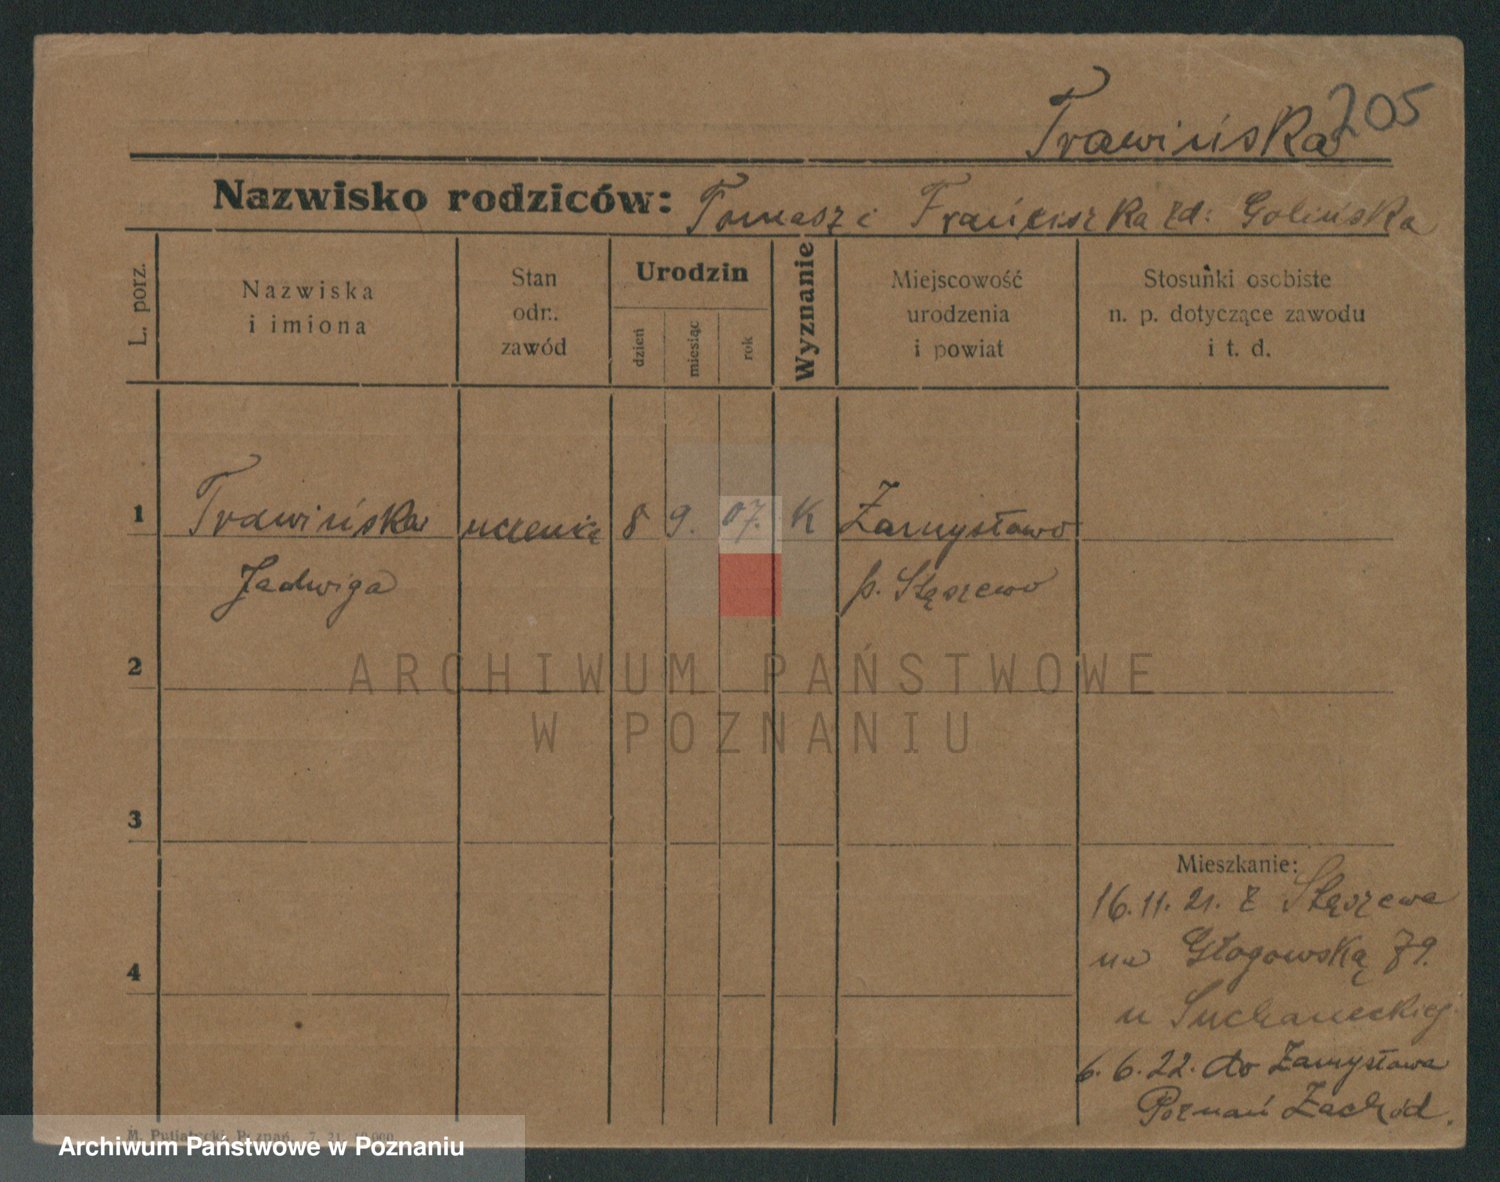 Trawińska 205
Nazwisko rodziców: Tomasz i Franciszka zd: Golińska
L. porz.
Nazwiska
i imiona
Stan
odn.
zawód
Urodzin
dzień
miesiąc
rok
Wyznanie
Miejscowość
urodzenia
i powiat
Stosunki osobiste
n. p. dotyczące zawodu
i t. d.
1 Trawińska uczenica 8 9. 07. K Zamysłowo
Jadwiga p. Stęszewo
2
ARCHIWUM PAŃSTWOWE
W POZNANIU
3
Mieszkanie:
16.11.21. z Stęszewa
na Głogowską 79.
4
u Suchaneckiej
6.6.22. do Zamysłowa
Poznań Zachód.
M. Putiatycki, Poznań. 7. 21. 10.000
Archiwum Państwowe w Poznaniu